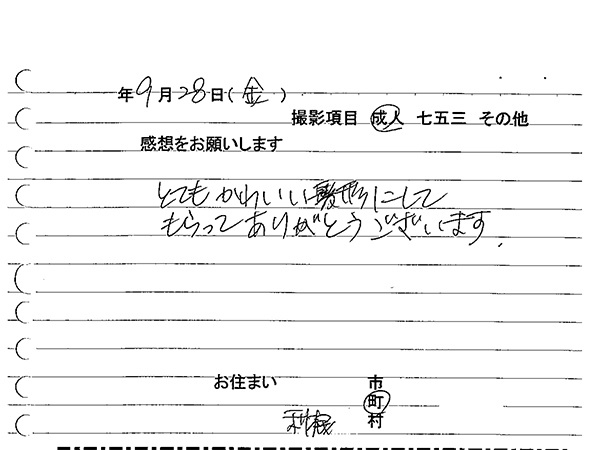 年9月28日(金)
撮影項目 成人 七五三 その他
感想をお願いします
とてもかわいい髪形にして
もらってありがとうございます.
お住まい 市
町
利根 村